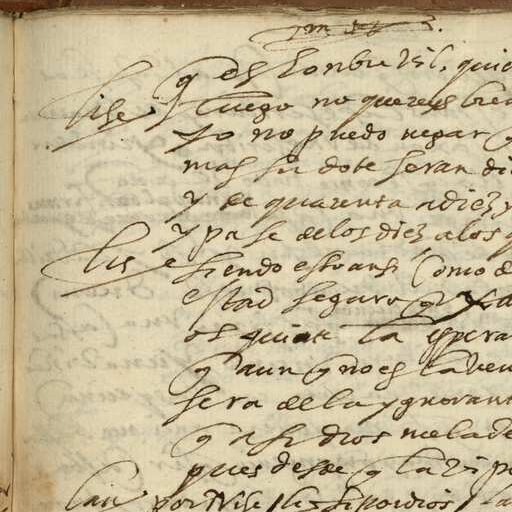 q es honbre vil, quie
lise luego no quereys bien
yo no puedo negar q
mas su dote seran di
y de quarenta a diez y
y pase de los diez a los q
lis siendo esto ansi como d
estad seguro q
os quite la espera
q aun q no es la ven
sera de la ygnorant
q a si dios me la de
pues desde q la vi p
lau por lise si por dios la